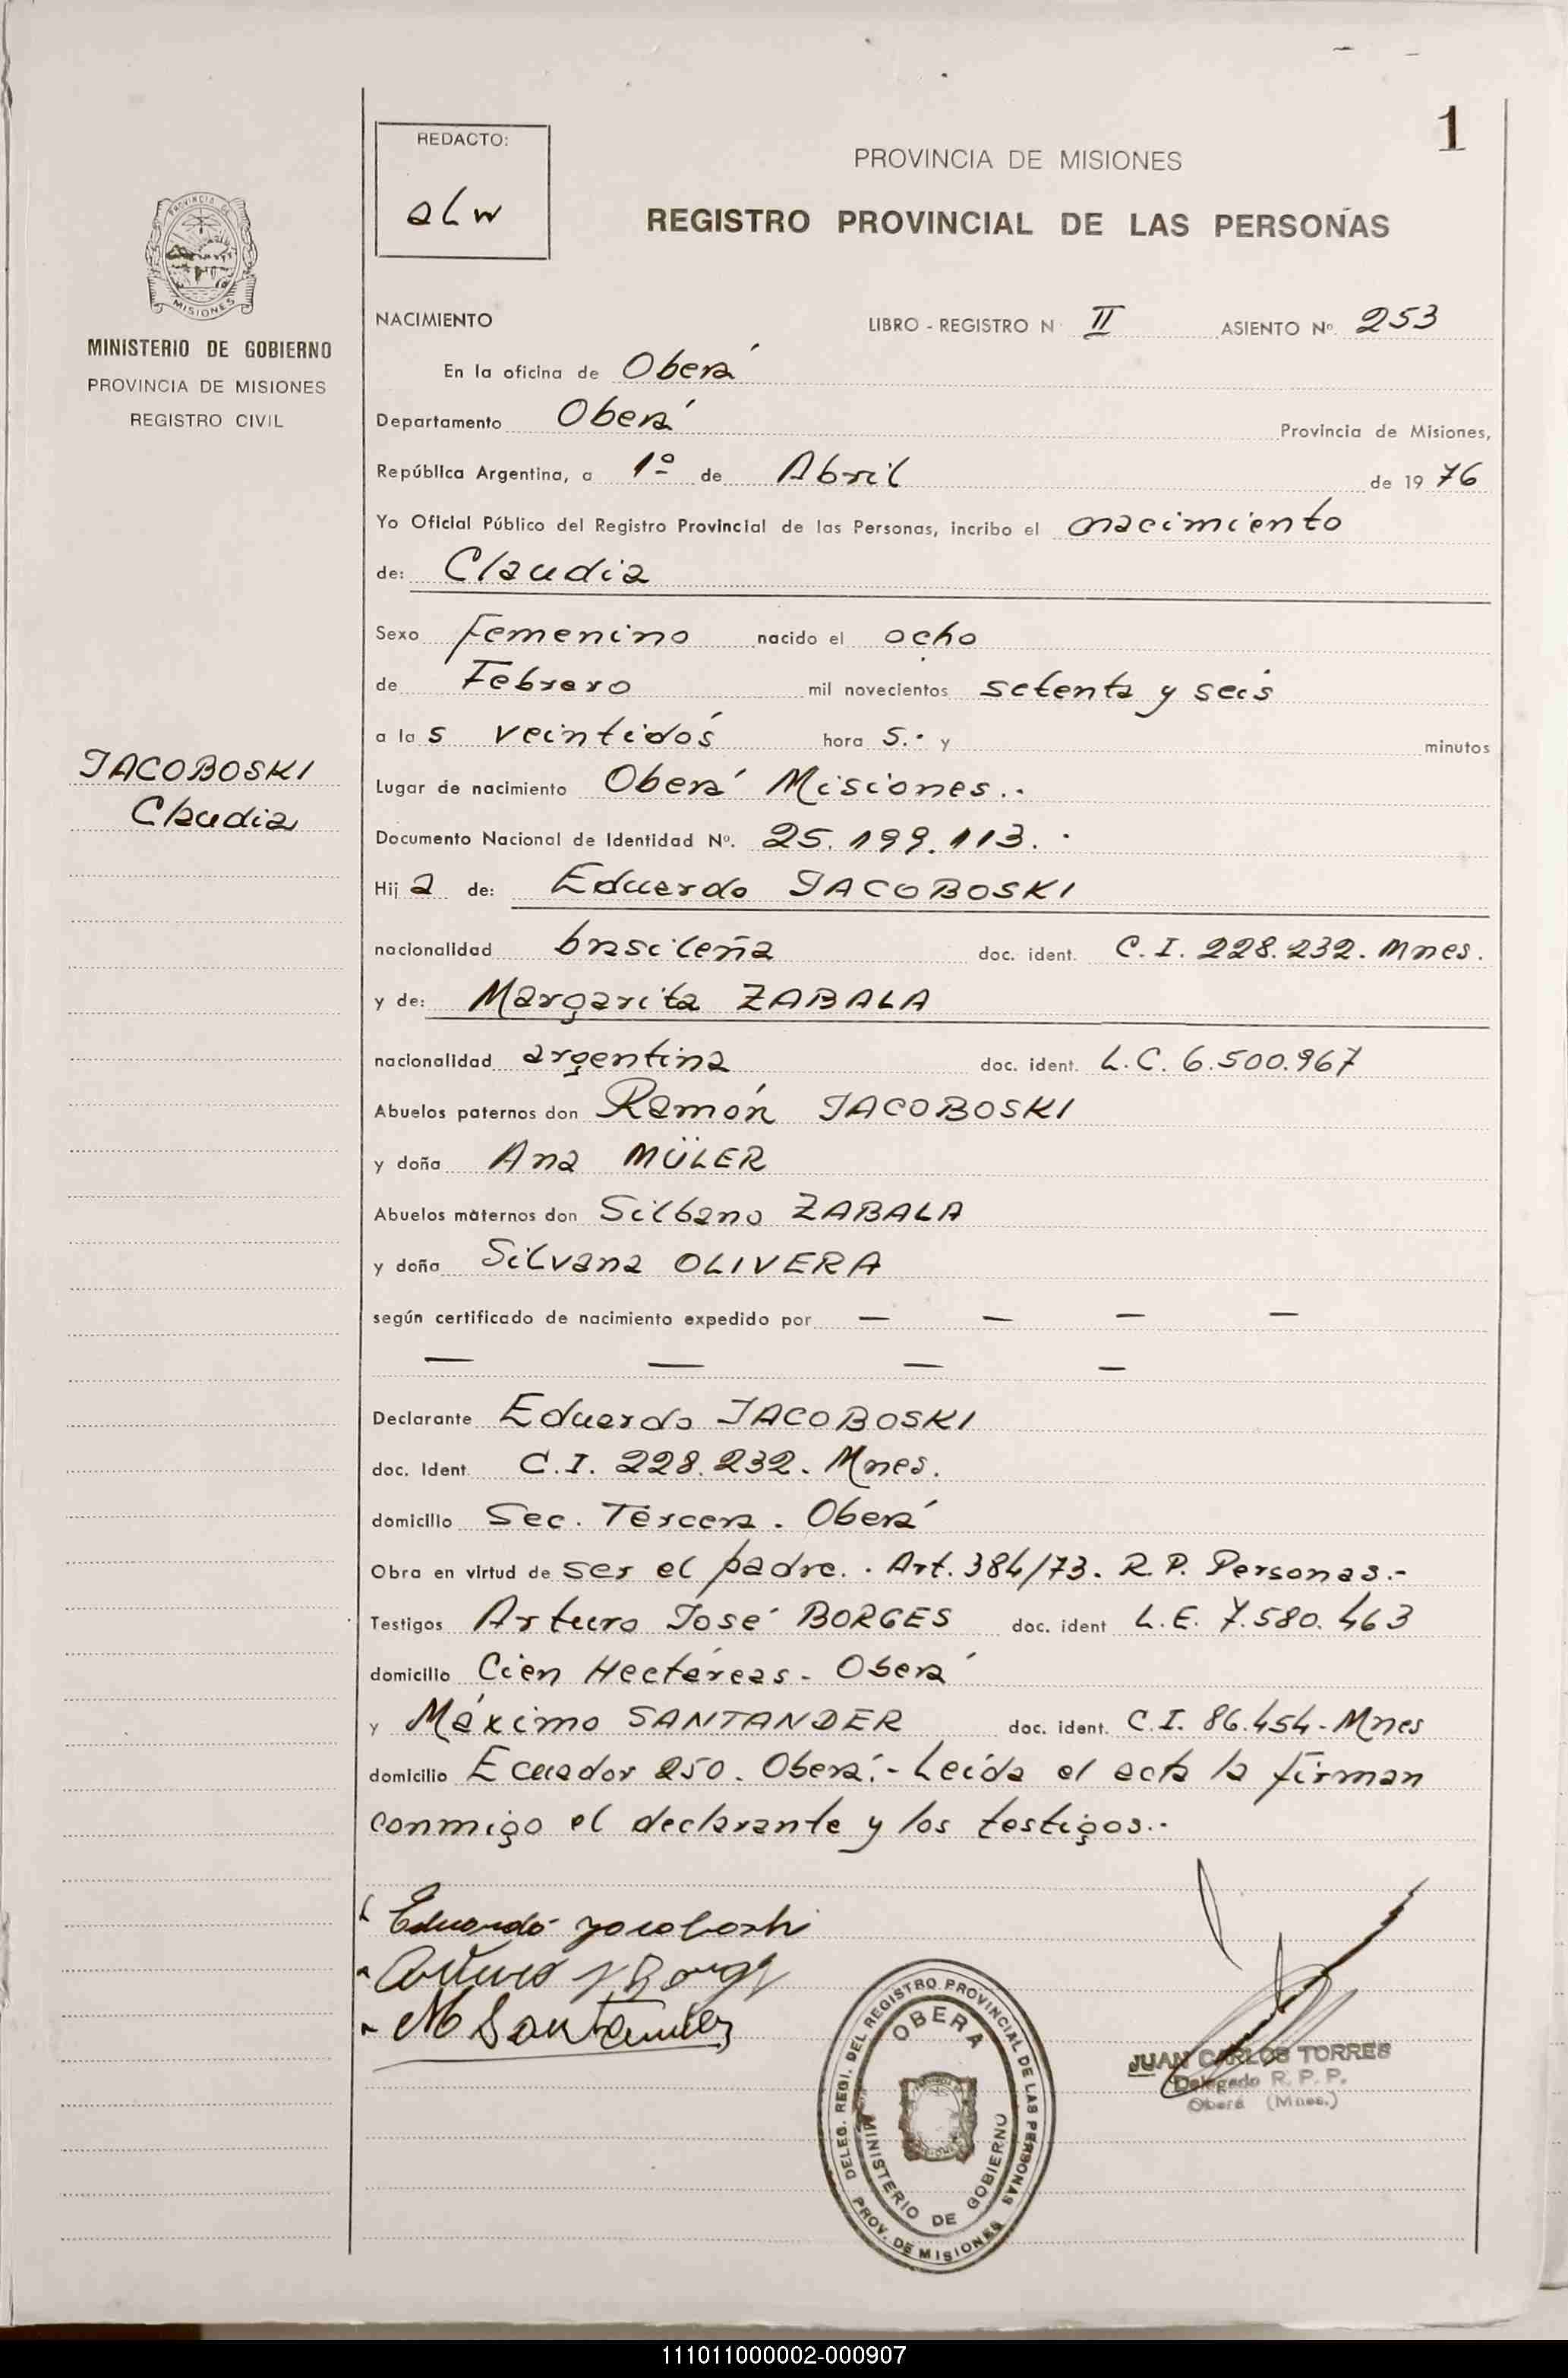 1
REDACTO:
alw
PROVINCIA DE MISIONES
REGISTRO PROVINCIAL DE LAS PERSONAS
PROVINCIA DE
MISIONES
MINISTERIO DE GOBIERNO
PROVINCIA DE MISIONES
REGISTRO CIVIL
NACIMIENTO LIBRO - REGISTRO N II ASIENTO Nº. 253
En la oficina de Oberá
Departamento Oberá Provincia de Misiones,
República Argentina, a 1º de Abril de 19 76
Yo Oficial Público del Registro Provincial de las Personas, incribo el nacimiento
de: Claudia
Sexo Femenino nacido el ocho
de Febrero mil novecientos setenta y seis
a la s veintidós hora s.- y minutos
JACOBOSKI
Claudia
Lugar de nacimiento Oberá Misiones.-
Documento Nacional de Identidad Nº. 25.199.113.-
Hij a de: Eduardo JACOBOSKI
nacionalidad brasileña doc. ident. C.I. 228.232. Mnes.
y de: Margarita ZABALA
nacionalidad argentina doc. ident. L.C. 6.500.967
Abuelos paternos don Ramón JACOBOSKI
y doña Ana MÜLER
Abuelos maternos don Silbano ZABALA
y doña Silvana OLIVERA
según certificado de nacimiento expedido por — — — —
— — — —
Declarante Eduardo JACOBOSKI
doc. Ident. C.I. 228.232. Mnes.
domicilio Sec. Tercera. Oberá
Obra en virtud de ser el padre.. Art. 384/73. R.P. Personas.-
Testigos Arturo José BORGES doc. ident L.E. 7.580.463
domicilio Cien Hectáreas - Oberá
y Máximo SANTANDER doc. ident. C.I. 86.454 - Mnes
domicilio Ecuador 250. Oberá.- Leída el acta la firman
conmigo el declarante y los testigos.-
Eduardo Jacoboski
Arturo J Borges
M Santander
DELEG. REGI. DEL REGISTRO PROVINCIAL DE LAS PERSONAS
OBERA
MINISTERIO DE GOBIERNO
PROV. DE MISIONES
JUAN CARLOS TORRES
Delegado R. P. P.
Oberá (Mnes.)
111011000002-000907